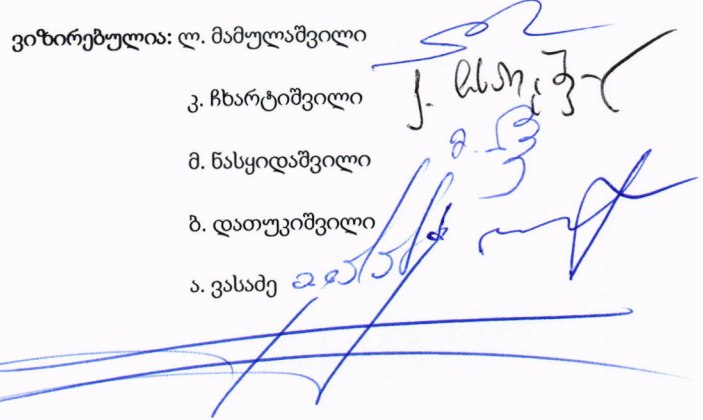 ვიზირებულია: ლ. მამულაშვილი
კ. ჩხარტიშვილი
მ. ნასყიდაშვილი
ბ. დათუკიშვილი
ა. ვასაძე